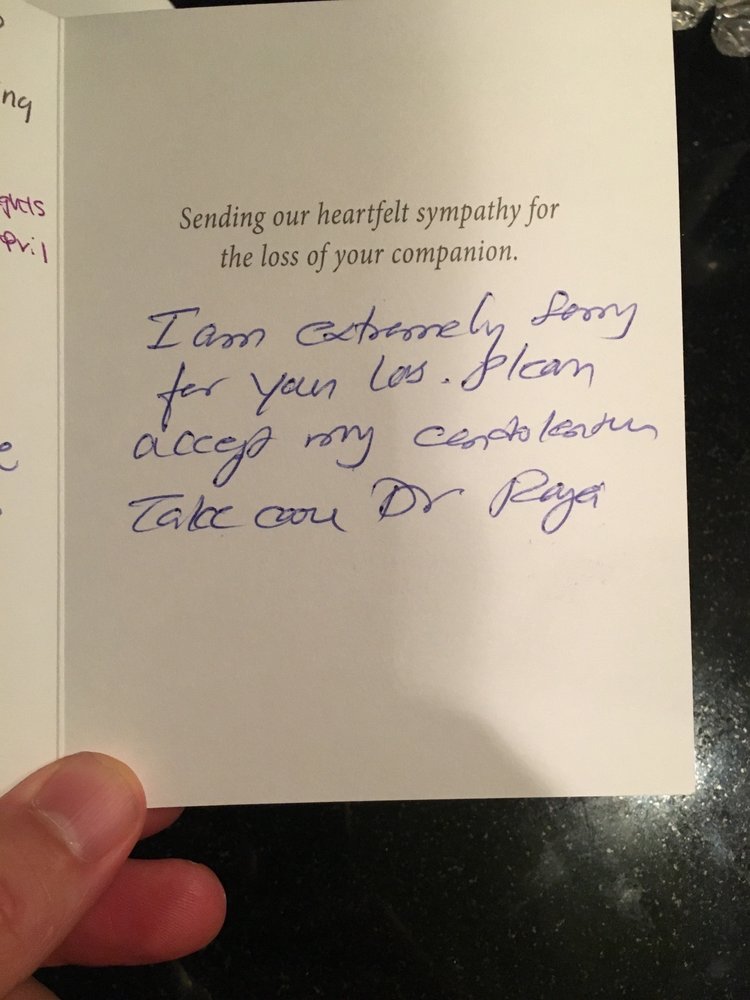 ng
ghts
April
Sending our heartfelt sympathy for
the loss of your companion.
I am extremely sorry
for your loss. Please
accept my condolences
Take care Dr Raja